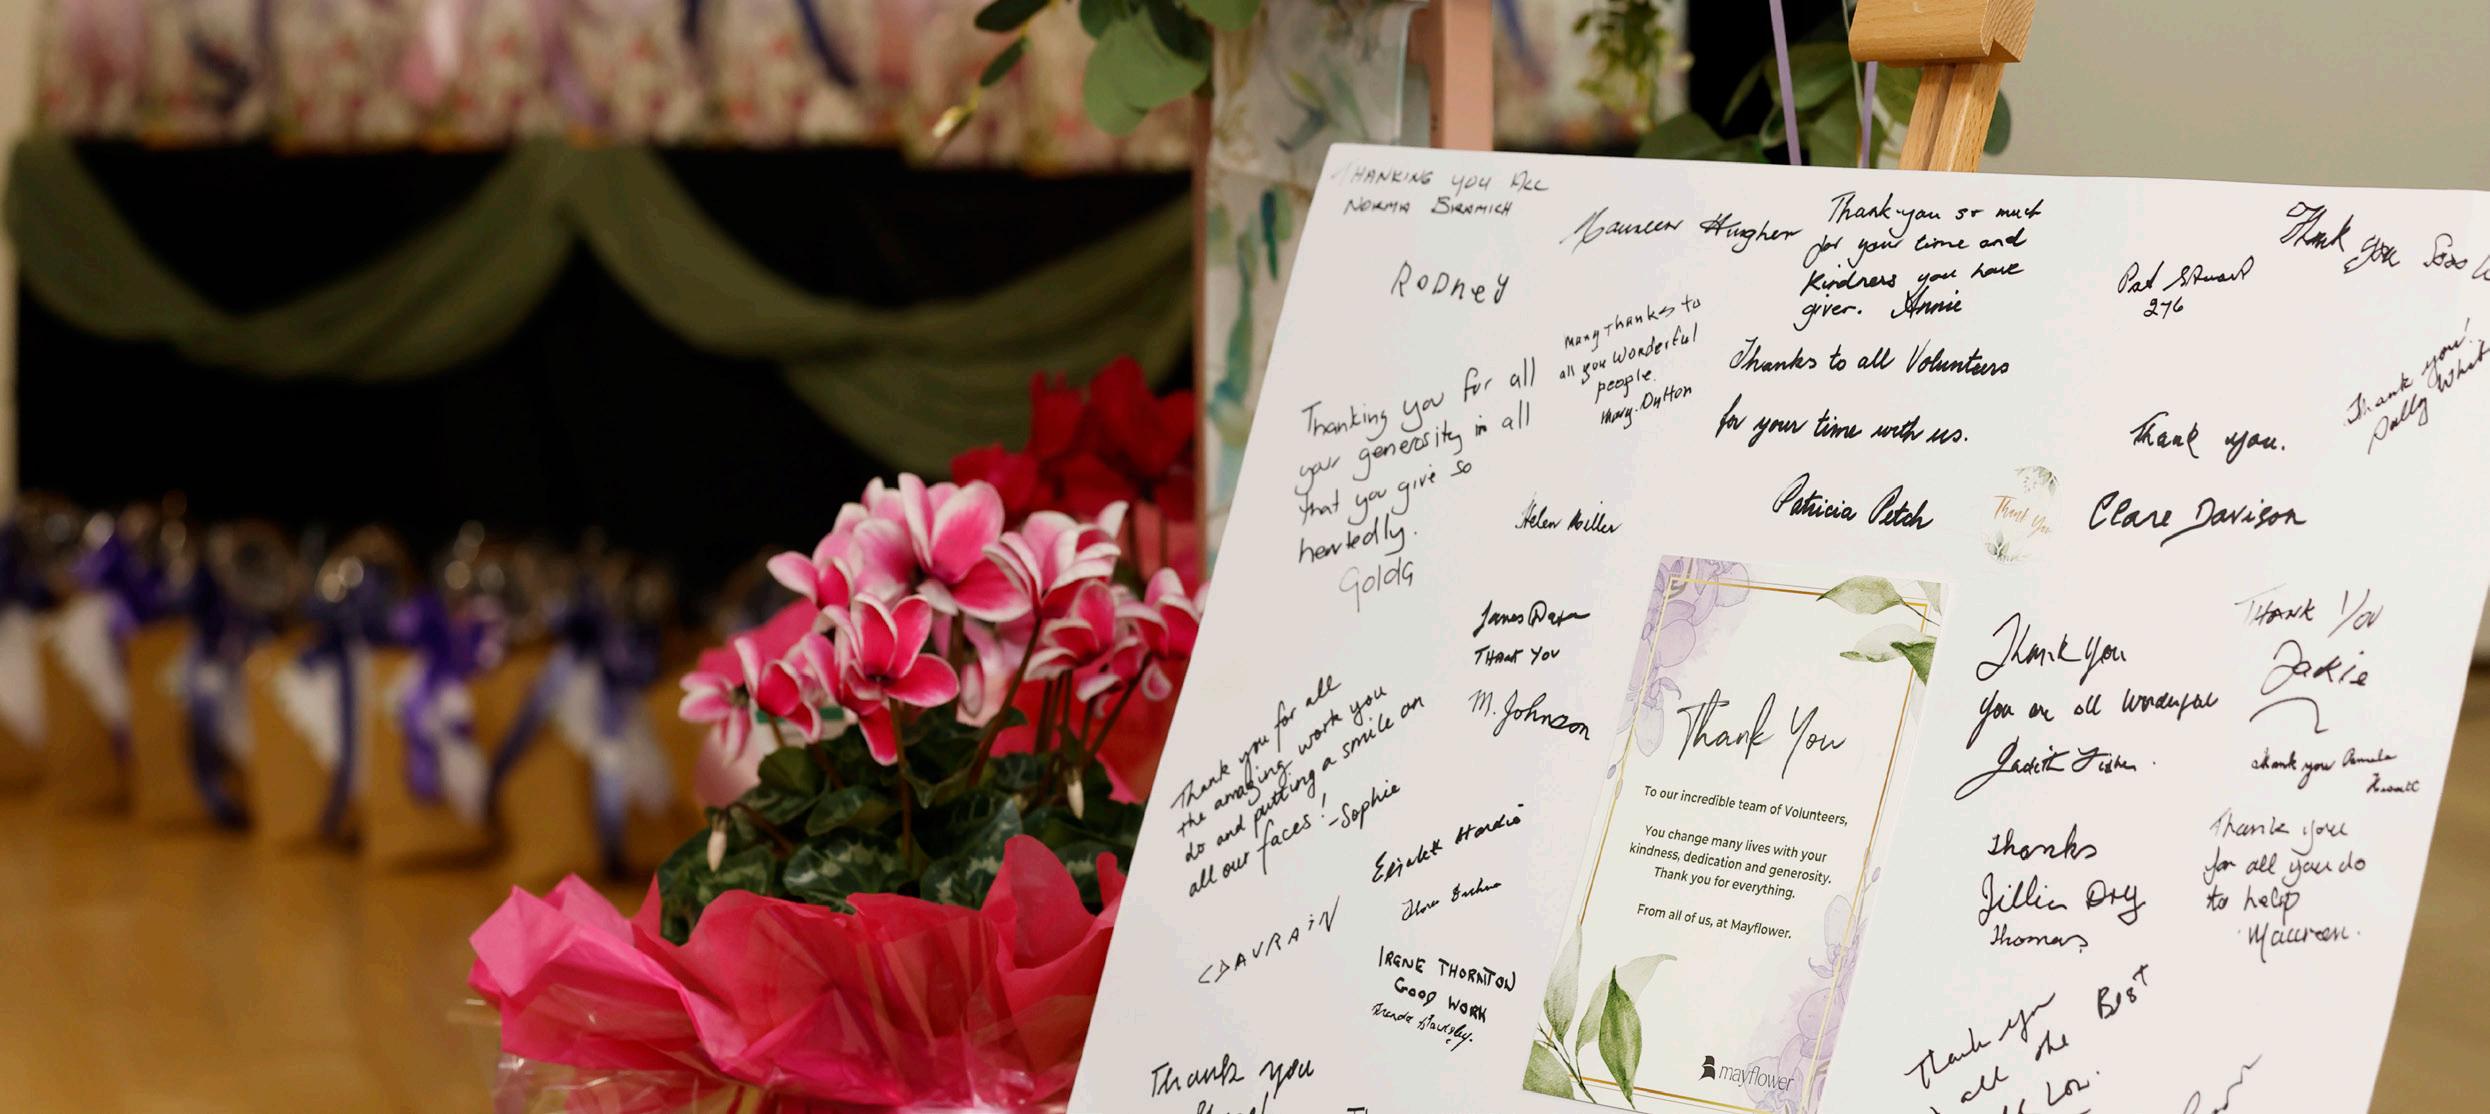 THANKING YOU ALL
NORMA BRAMICH
Maureen Hughes
Rodney
Thank-you so much
for your time and
Kindness you have
given. Annie
Pat Stuart
276
Thank you Sooo
Many thanks to
all you wonderful
people.
Mary. Dutton
Thanks to all Volunteers
for your time with us.
Patricia Petch
Thank you!
Sally
Thank you.
Clare Davison
Thank You
Thanking you for all
your generosity in all
that you give so
heartedly.
Golda
Helen Miller
James
THANK YOU
M. Johnson
Thank you for all
the amazing work you
do and putting a smile on
all our faces! -Sophie
Elizabeth Hardie
IRENE THORNTON
GOOD WORK
Thank you
Thank You
To our incredible team of Volunteers,
You change many lives with your
kindness, dedication and generosity.
Thank you for everything.
From all of us, at Mayflower.
mayflower
Thank You
You are all Wonderful
Judith Fisher.
THANK YOU
Jackie
thank you Pamela
Thanks
Jillian Ory
Thomas
Thank you
for all you do
to help
Maureen.
Thank you
all the Best